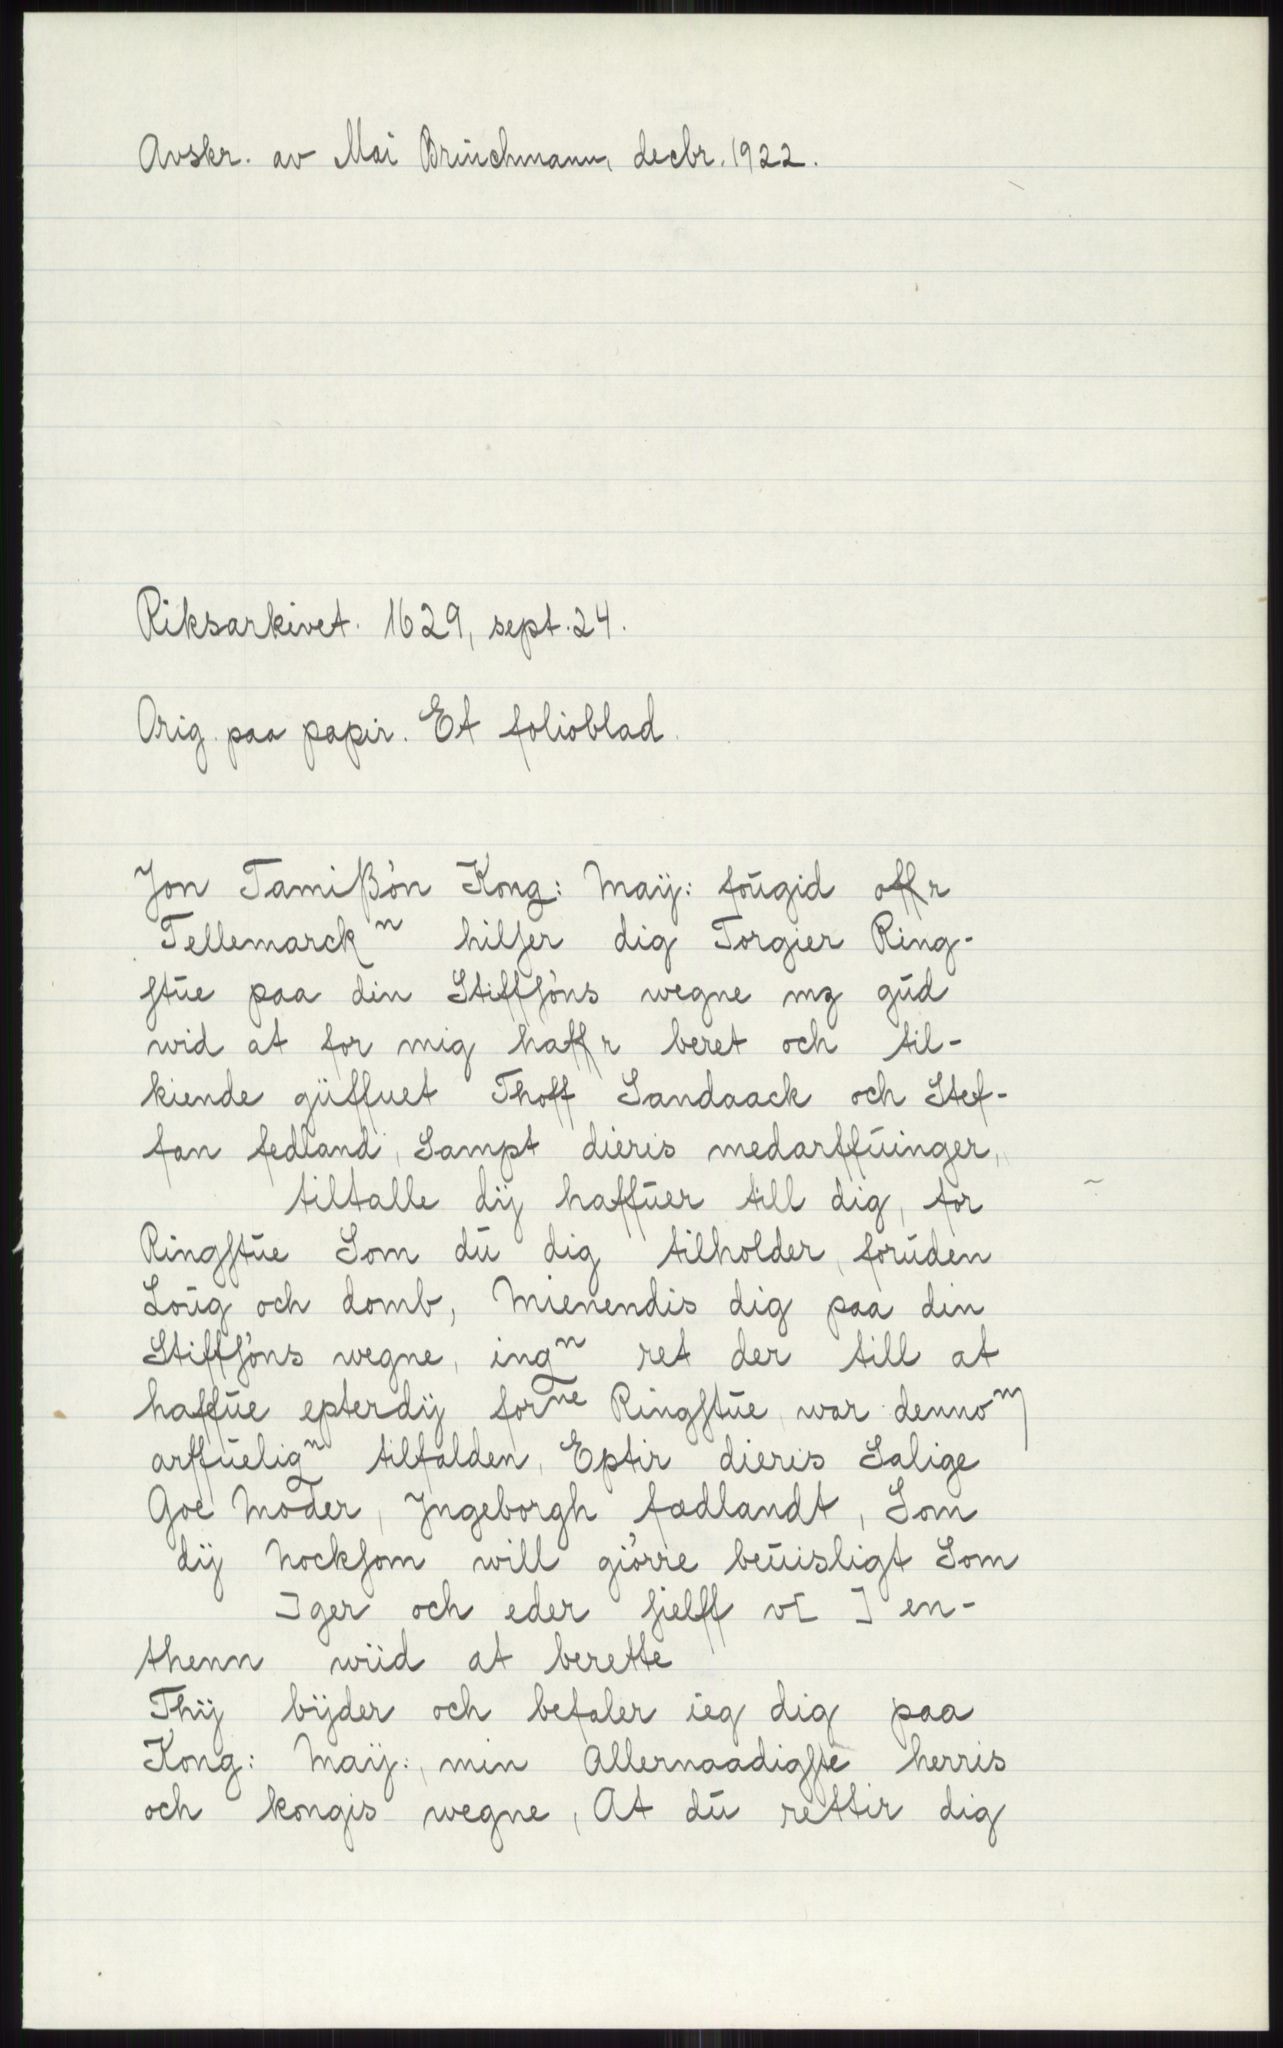 Avskr. av Mai Brinchmann, decbr. 1922.
Riksarkivet. 1629, sept. 24.
Orig. paa papir. Et folioblad.
Jon Tamißøn Kong: Maÿ: foŭgid offr
Tellemarckⁿ hilser dig Torgier Ring-
stŭe paa din Stiffsøns wegne mz gŭd
wid at for mig haffr beret och til-
kiende gŭffuet Thoff Sandaack och Stef-
fan fedland, Sampt dieris medarffŭinger,
tiltalle dÿ haffŭer till dig, for
Ringstŭe Som dŭ dig tilholder forŭden
Loŭg och domb, Mienendis dig paa din
Stiffsøns wegne, ingⁿ ret der till at
haffŭe epterdÿ forⁿᵉ Ringstŭe war dennoᵐ
arffŭeligⁿ tilfalden, Eptir dieris Salige
Goe Moder, Jngeborgh fædlandt, Som
dÿ Nocksom will giørre beŭisligt Som
]ger och eder sielff v[ ] en-
thenn wiid at berette
Thÿ bÿder och befaler ieg dig paa
Kong: Maÿ:, min Allernaadigste herris
och kongis wegne, At dŭ rettir dig